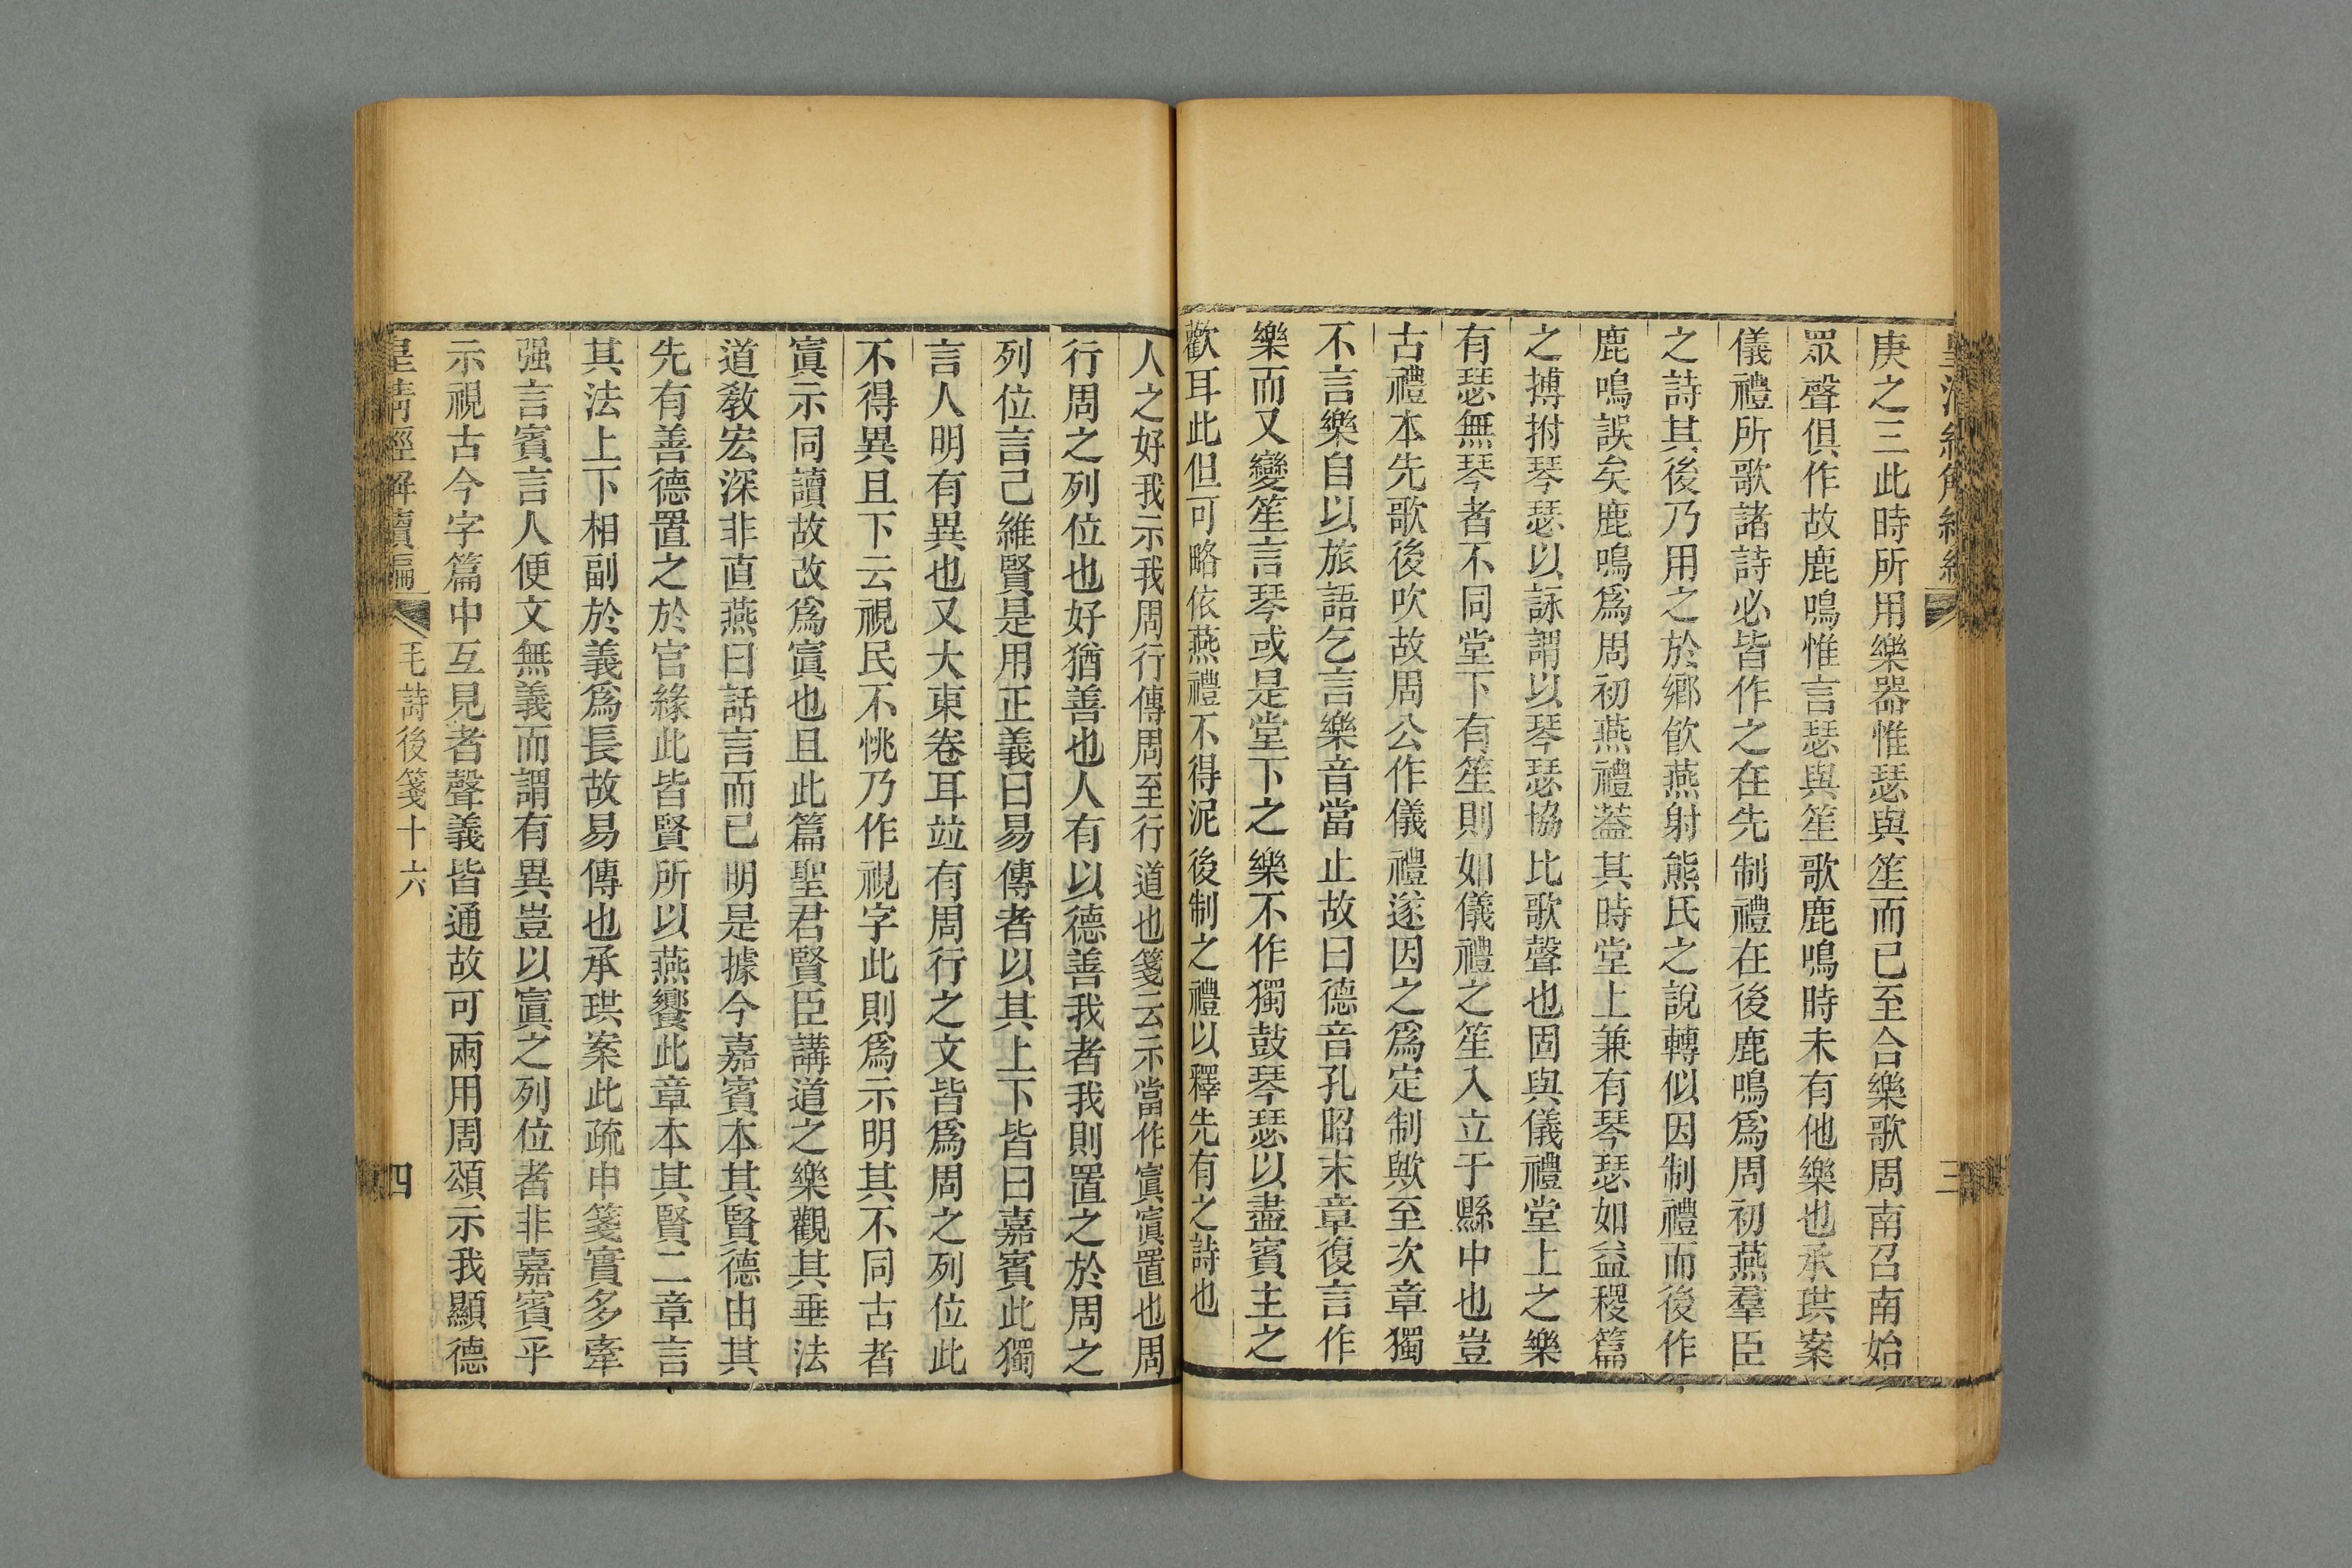 庚之三此時所用樂器惟瑟與笙而已至合樂歌周南召南始
眾聲俱作故鹿鳴惟言瑟與笙歌鹿鳴時未有他樂也承珙案
儀禮所歌諸詩必皆作之在先制禮在後鹿鳴爲周初燕羣臣
之詩其後乃用之於鄉飮燕射熊氏之說轉似因制禮而後作
鹿鳴誤矣鹿鳴爲周初燕禮葢其時堂上兼有琴瑟如益稷篇
之搏拊琴瑟以詠謂以琴瑟協比歌聲也固與儀禮堂上之樂
有瑟無琴者不同堂下有笙則如儀禮之笙入立于縣中也豈
古禮本先歌後吹故周公作儀禮遂因之爲定制歟至次章獨
不言樂自以旅語乞言樂音當止故曰德音孔昭末章復言作
樂而又變笙言琴或是堂下之樂不作獨鼓琴瑟以盡賓主之
歡耳此但可略依燕禮不得泥後制之禮以釋先有之詩也
三
人之好我示我周行傳周至行道也箋云示當作寘寘置也周
行周之列位也好猶善也人有以德善我者我則置之於周之
列位言己維賢是用正義曰易傳者以其上下皆曰嘉賓此獨
言人明有異也又大東卷耳竝有周行之文皆爲周之列位此
不得異且下云視民不恌乃作視字此則爲示明其不同古者
寘示同讀故改爲寘也且此篇聖君賢臣講道之樂觀其垂法
道敎宏深非直燕曰話言而已明是據今嘉賓本其賢德由其
先有善德置之於官緣此皆賢所以燕饗此章本其賢二章言
其法上下相副於義爲長故易傳也承珙案此疏申箋實多牽
强言賓言人便文無義而謂有異豈以寘之列位者非嘉賓乎
示視古今字篇中互見者聲義皆通故可兩用周頌示我顯德
皇淸經解續編
毛詩後箋十六
四